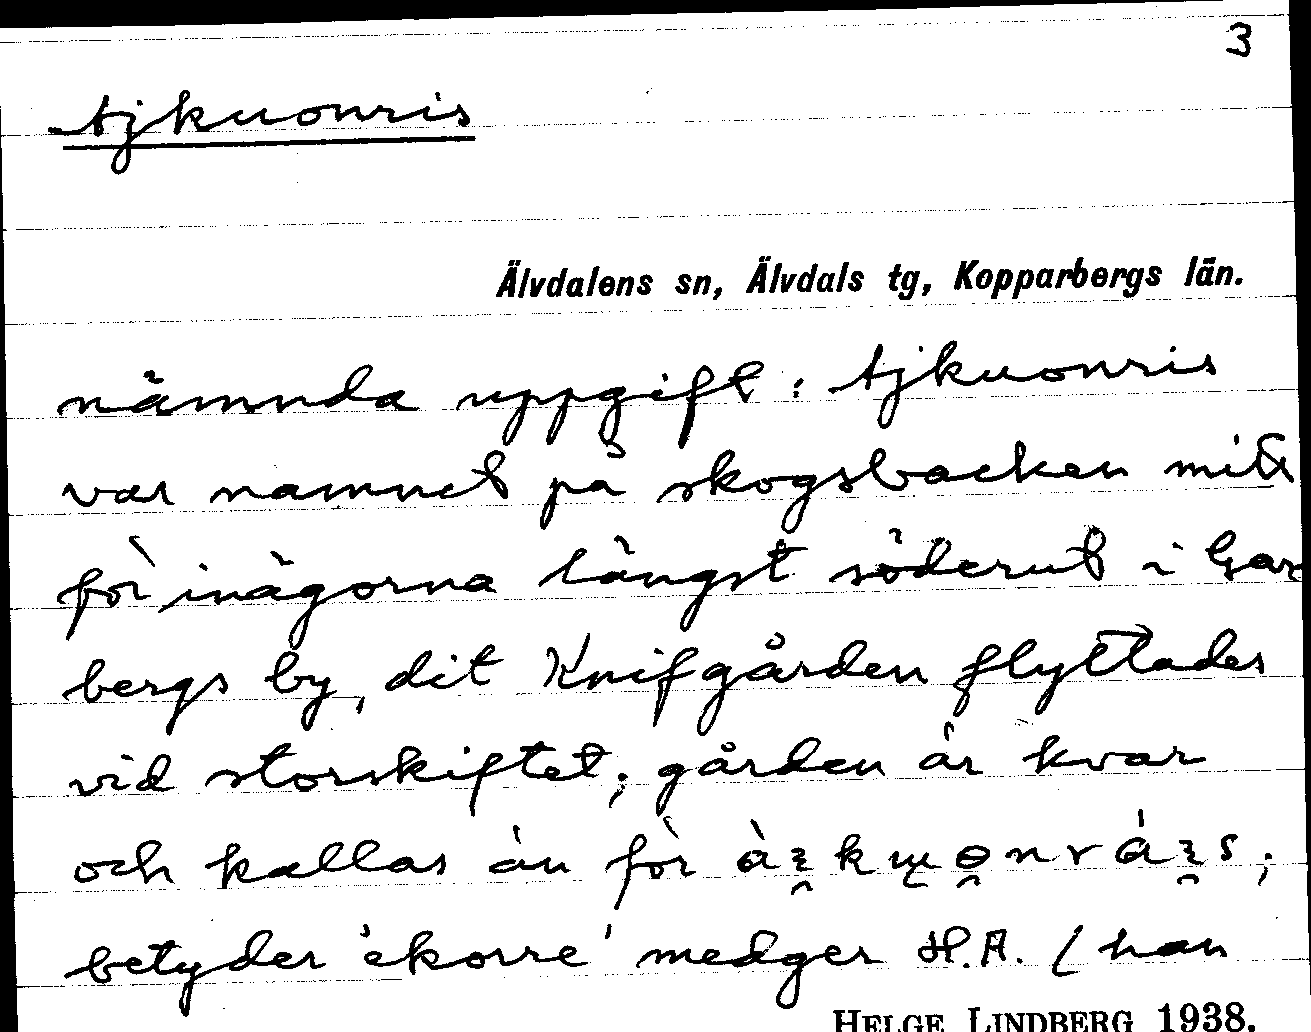 3
Ajkuonris
Älvdalens sn, Älvdals tg, Kopparbergs län.
nämnda uppgift: Ajkuonris
var namnet på skogsbacken mitt
för inägorna längst söderut i Gar
bergs by, dit Knifgården flyttades
vid storskiftet; gården är kvar
och kallas än för
betyder 'ekorre' medger H.A. (han
HELGE LINDBERG 1938.